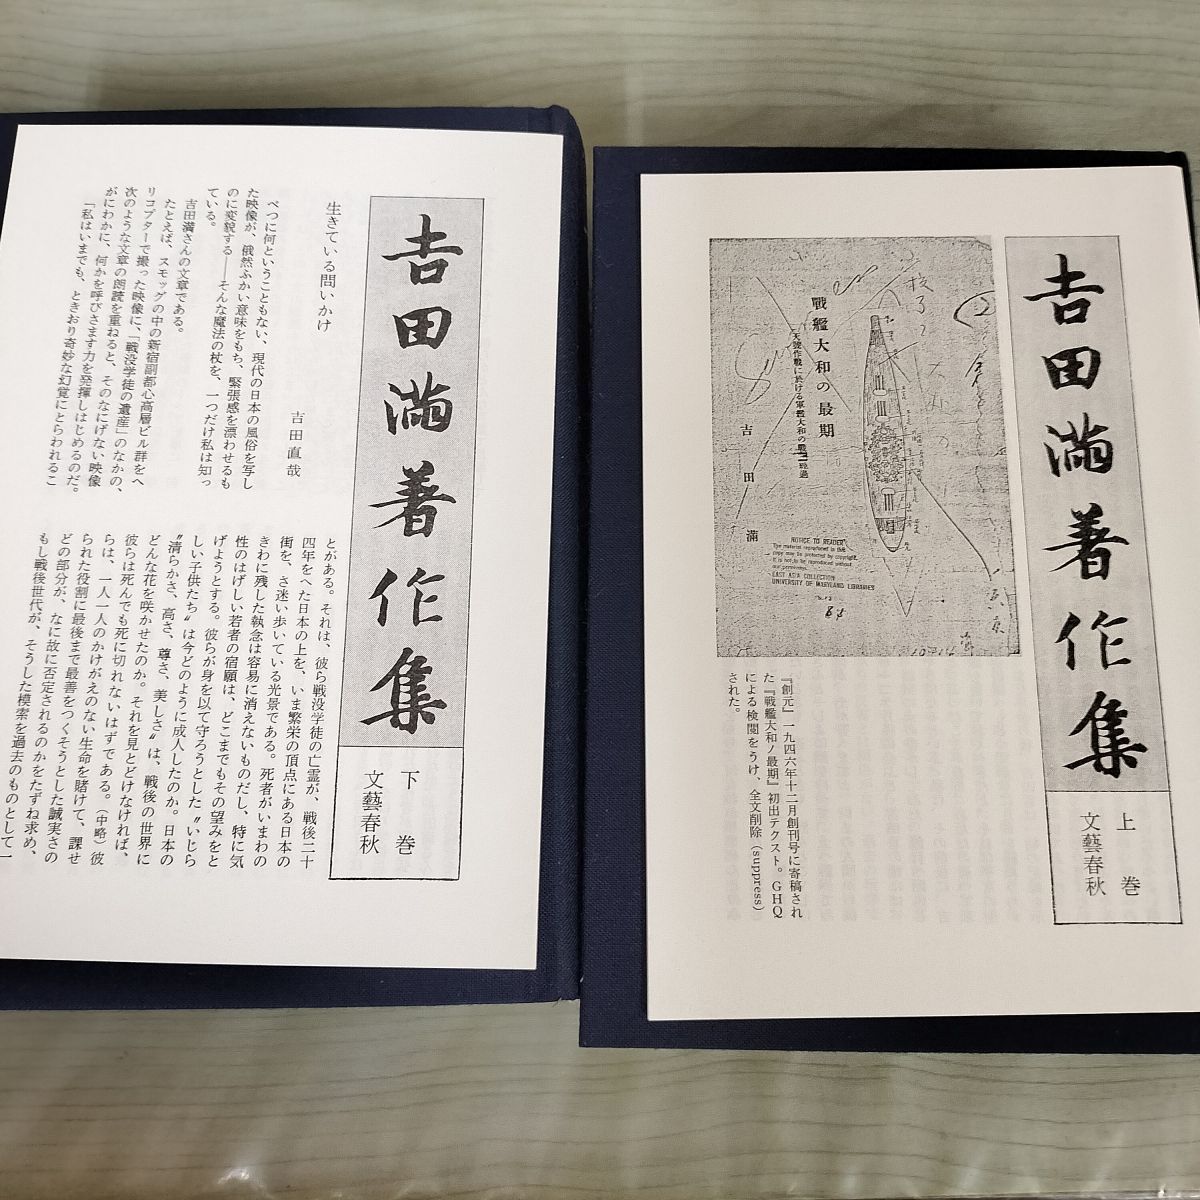 吉田満著作集
上巻
文藝春秋
戰艦大和の最期
天號作戰に於ける軍艦大和の戰闘經過
吉田滿
NOTICE TO READER
The material reproduced in this
copy may be protected by copyright.
It is not to be reproduced without
our permission.
EAST ASIA COLLECTION
UNIVERSITY OF MARYLAND LIBRARIES
『創元』一九四六年十二月創刊号に寄稿され
た『戦艦大和ノ最期』初出テクスト。GHQ
による検閲をうけ、全文削除(suppress)
された。
吉田満著作集
下巻
文藝春秋
生きている問いかけ
吉田直哉
べつに何ということもない、現代の日本の風俗を写し
た映像が、俄然ふかい意味をもち、緊張感を漂わせるも
のに変貌する——そんな魔法の杖を、一つだけ私は知っ
ている。
吉田満さんの文章である。
たとえば、スモッグの中の新宿副都心高層ビル群をヘ
リコプターで撮った映像に、「戦没学徒の遺産」のなかの、
次のような文章の朗読を重ねると、そのなにげない映像
がにわかに、何かを呼びさます力を発揮しはじめるのだ。
「私はいまでも、ときおり奇妙な幻覚にとらわれるこ
とがある。それは、彼ら戦没学徒の亡霊が、戦後二十
四年をへた日本の上を、いま繁栄の頂点にある日本の
街を、さ迷い歩いている光景である。死者がいまわの
きわに残した執念は容易に消えないものだし、特に気
性のはげしい若者の宿願は、どこまでもその望みをと
げようとする。彼らが身を以て守ろうとした〝いじら
しい子供たち〟は今どのように成人したのか。日本の
〝清らかさ、高さ、尊さ、美しさ〟は、戦後の世界に
どんな花を咲かせたのか。それを見とどけなければ、
彼らは死んでも死に切れないはずである。(中略)彼
らは、一人一人のかけがえのない生命を賭けて、課せ
られた役割に最後まで最善をつくそうとした誠実さの
どの部分が、なに故に否定されるのかをたずね求め、
もし戦後世代が、そうした模索を過去のものとして一